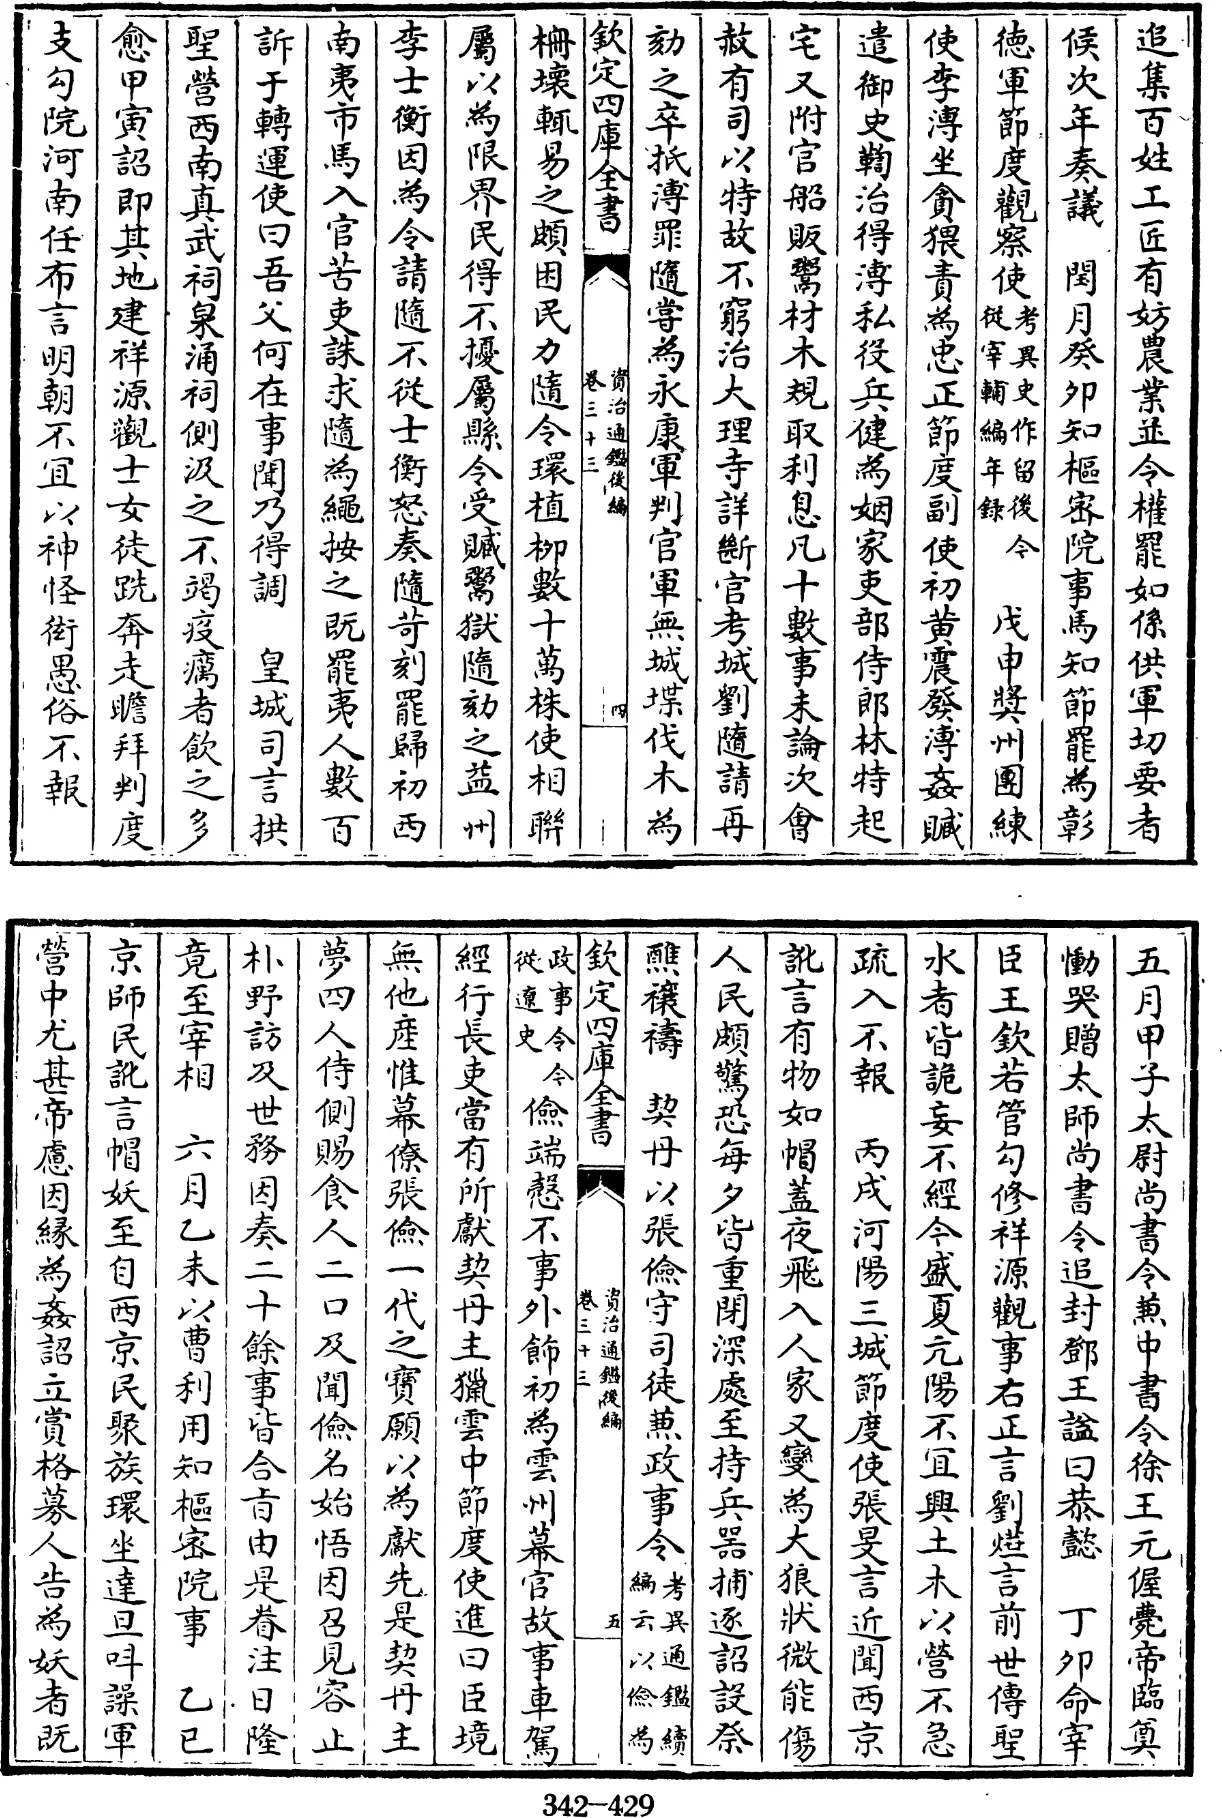 追集百姓工匠有妨農業並令權罷如係供軍切要者
候次年奏議　閏月癸卯知樞密院事馬知節罷為彰
德軍節度觀察使考異史作留後今從宰輔編年録　戊申奬州團練
使李溥坐貪猥責為忠正節度副使初黄震發溥姦贓
遣御史鞫治得溥私役兵健為姻家吏部侍郎林特起
宅又附官船販鬻材木規取利息凡十數事未論次會
赦有司以特故不窮治大理寺詳斷官考城劉隨請再
劾之卒抵溥罪隨嘗為永康軍判官軍無城堞伐木為
欽定四庫全書　資治通鑑後編卷三十三　四
柵壞輒易之頗困民力隨令環植柳數十萬株使相聯
屬以為限界民得不擾屬縣令受贓鬻獄隨劾之益州
李士衡因為令請隨不從士衡怒奏隨苛刻罷歸初西
南夷市馬入官苦吏誅求隨為繩按之既罷夷人數百
訴于轉運使曰吾父何在事聞乃得調　皇城司言拱
聖營西南真武祠泉涌祠側汲之不竭疫癘者飲之多
愈甲寅詔即其地建祥源觀士女徒跣奔走瞻拜判度
支勾院河南任布言明朝不宜以神怪衒愚俗不報
五月甲子太尉尚書令兼中書令徐王元偓薨帝臨奠
慟哭贈太師尚書令追封鄧王謚曰恭懿　丁卯命宰
臣王欽若管勾修祥源觀事右正言劉燁言前世傳聖
水者皆詭妄不經今盛夏亢陽不宜興土木以營不急
疏入不報　丙戌河陽三城節度使張旻言近聞西京
訛言有物如帽蓋夜飛入人家又變為大狼狀微能傷
人民頗驚恐每夕皆重閉深處至持兵器捕逐詔設祭
醮禳禱　契丹以張儉守司徒兼政事令考異通鑑續編云以儉為
欽定四庫全書　資治通鑑後編卷三十三　五
政事令今從遼史　儉端慤不事外飾初為雲州幕官故事車駕
經行長吏當有所獻契丹主獵雲中節度使進曰臣境
無他産惟幕僚張儉一代之寶願以為獻先是契丹主
夢四人侍側賜食人二口及聞儉名始悟因召見容止
朴野訪及世務因奏二十餘事皆合旨由是眷注日隆
竟至宰相　六月乙未以曹利用知樞密院事　乙巳
京師民訛言帽妖至自西京民聚族環坐達旦叫譟軍
營中尤甚帝慮因緣為姦詔立賞格募人告為妖者既
342-429